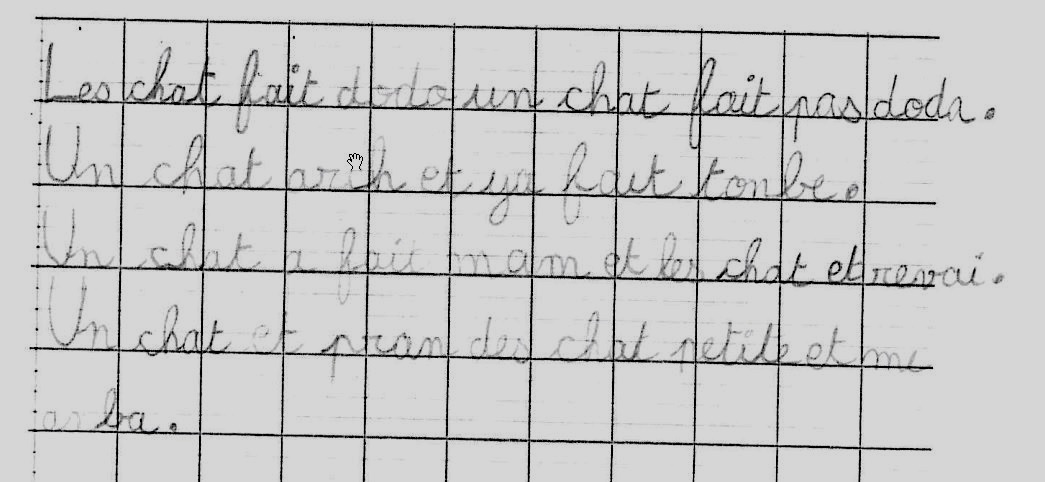 Les chat fait dodo un chat fait pas dodo.
Un chat arih et ya fait tonbe.
Un chat a fait mam et les chat et revai.
Un chat et pran des chat petite et me
ba.